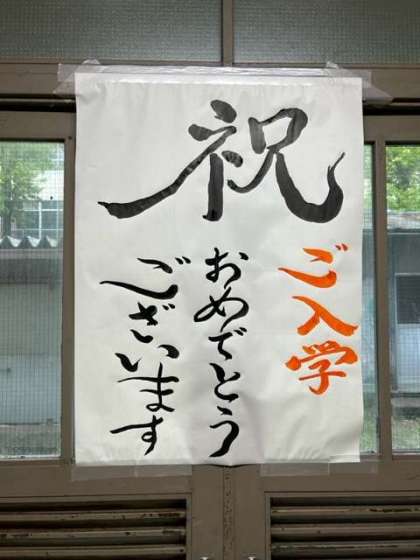 祝
ご入学
おめでとう
ございます